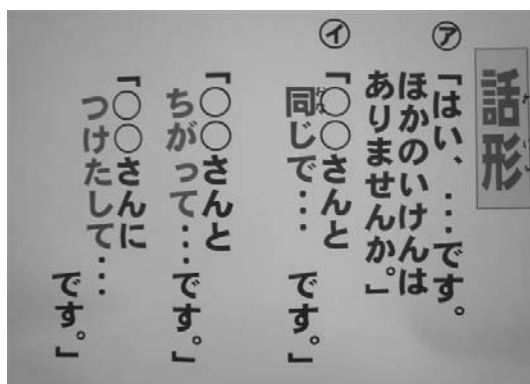 話形
㋐「はい、…です。
ほかのいけんは
ありませんか。」
㋑「○○さんと
同じで… です。」
「○○さんと
ちがって…です。」
「○○さんに
つけたして…
です。」